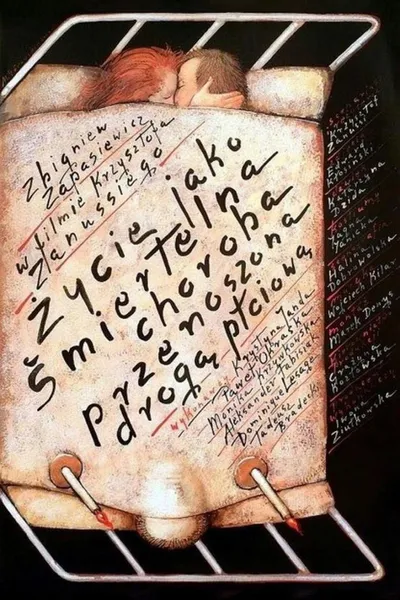 Zbigniew
Zapasiewicz
w filmie Krzysztofa
Zanussiego
Życie jako
Śmiertelna
choroba
Przenoszona
drogą płciową
wykonawcy Krystyna Janda
Paweł Okraska
Monika Krzywkowska
Aleksander Fabisiak
Dominique Lesage
Tadeusz
Bradecki
scenariusz
Krzysztof
Zanussi
Edward
Kłosiński
Jagna
Janicka
Halina
Dobrowolska
Wojciech Kilar
Marek Denys
Grażyna